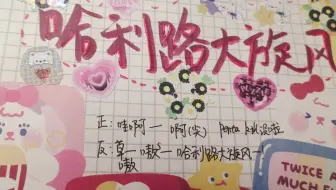 哈利路大旋风
正：哇啊一 啊(尖)
反：草一 嗷 一 哈利路大旋风一
嗷
TWICE
MUCH